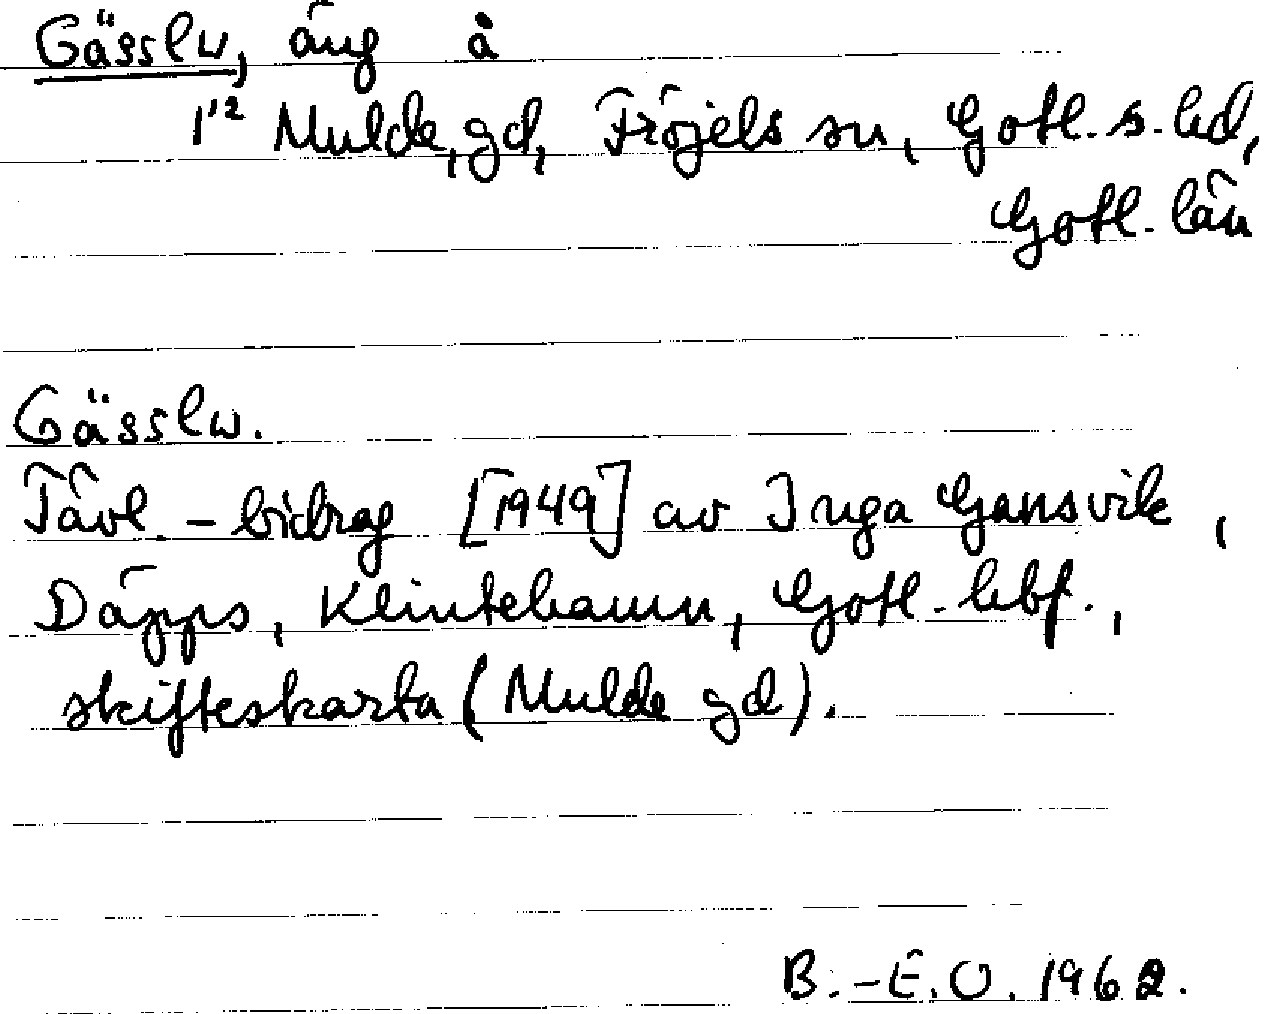 Gässlw, äng å
1'² Mulde, gd, Fröjels sn, Gotl. s. hd,
Gotl. län
Gässlw.
Tävl.-bidrag [1949] av Inga Gansvik,
Däpps, Klintehamn, Gotl. hbf.,
skifteskarta (Mulde gd).
B.-E.O. 1962.